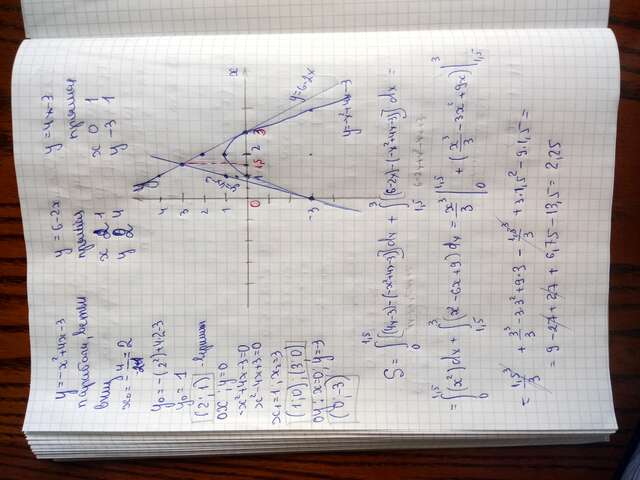 y = -x²+4x-3
парабола, ветви
вниз
x₀ = -4/-2·1 = 2
y₀ = -(2²)+4·2-3
y₀ = 1
(2; 1) - вершина
OX, y=0
-x²+4x-3=0
x²-4x+3=0
x₁=1, x₂=3
(1;0), (3;0)
OY: x=0, y=-3
(0; -3)
y = 6-2x
прямая
x 2 1
y 2 4
y = 4x-3
прямая
x 0 1
y -3 1
y
4
3
2
1
0
1
1,5
2
3
x
-3
y=6-2x
y=-x²+4x-3
S = ∫₀^1,5 [(4x-3)-(-x²+4x-3)]dx + ∫_1,5^3 [(6-2x)-(-x²+4x-3)]dx =
6-2x+x²-4x+3
= ∫₀^1,5 (x²)dx + ∫_1,5^3 (x²-6x+9)dx = x³/3 |₀^1,5 + (x³/3 - 3x² + 9x)|_1,5^3
= 1,5³/3 + 3³/3 - 3·3² + 9·3 - 1,5³/3 + 3·1,5² - 9·1,5 =
= 9 - 27 + 27 + 6,75 - 13,5 = 2,25